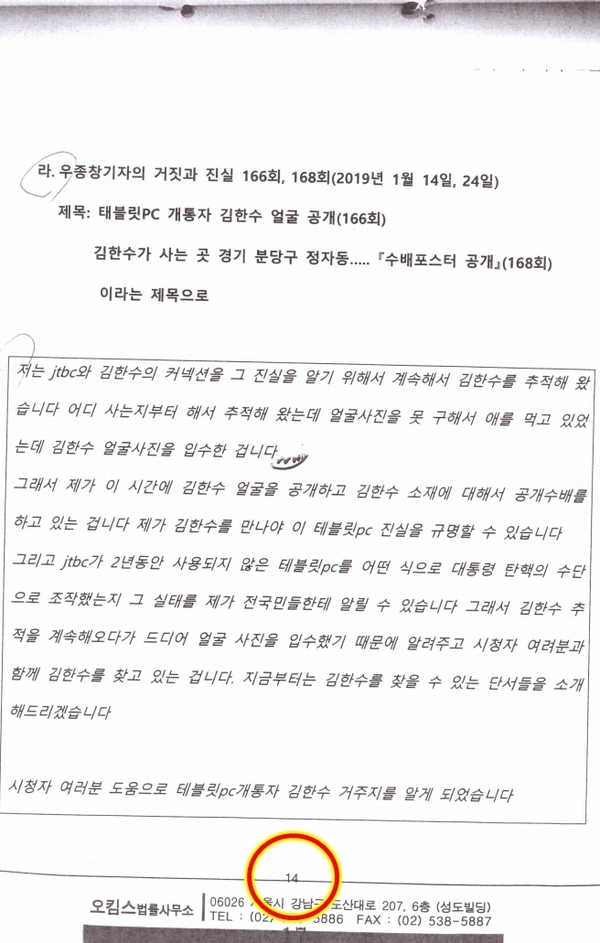 라. 우종창기자의 거짓과 진실 166회, 168회(2019년 1월 14일, 24일)
제목: 태블릿PC 개통자 김한수 얼굴 공개(166회)
김한수가 사는 곳 경기 분당구 정자동..... 『수배포스터 공개』(168회)
이라는 제목으로
저는 jtbc와 김한수의 커넥션을 그 진실을 알기 위해서 계속해서 김한수를 추적해 왔
습니다 어디 사는지부터 해서 추적해 왔는데 얼굴사진을 못 구해서 애를 먹고 있었
는데 김한수 얼굴사진을 입수한 겁니다
그래서 제가 이 시간에 김한수 얼굴을 공개하고 김한수 소재에 대해서 공개수배를
하고 있는 겁니다 제가 김한수를 만나야 이 테블릿pc 진실을 규명할 수 있습니다
그리고 jtbc가 2년동안 사용되지 않은 테블릿pc를 어떤 식으로 대통령 탄핵의 수단
으로 조작했는지 그 실태를 제가 전국민들한테 알릴 수 있습니다 그래서 김한수 추
적을 계속해오다가 드디어 얼굴 사진을 입수했기 때문에 알려주고 시청자 여러분과
함께 김한수를 찾고 있는 겁니다. 지금부터는 김한수를 찾을 수 있는 단서들을 소개
해드리겠습니다
시청자 여러분 도움으로 테블릿pc개통자 김한수 거주지를 알게 되었습니다
14
오킴스법률사무소
06026 서울시 강남구 도산대로 207, 6층 (성도빌딩)
TEL : (02) 5886 FAX : (02) 538-5887